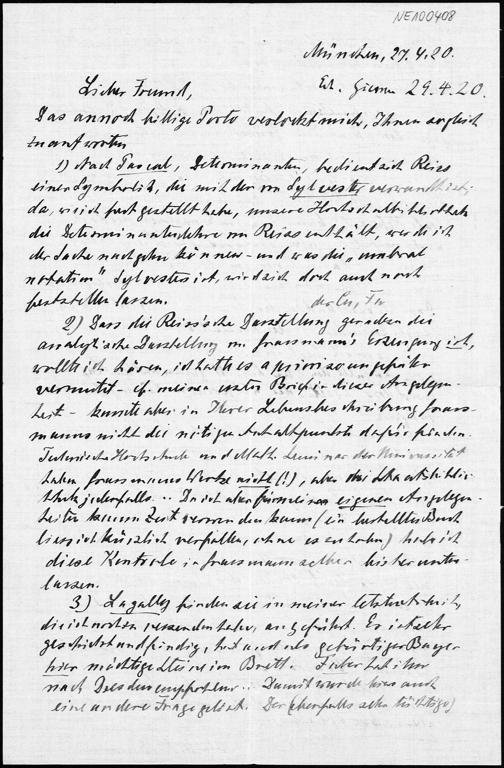 NEA00408
München, 27.4.20.
Erh. Giessen 29.4.20.
Lieber Freund,
Das annoch billige Porto verlockt mich, Ihnen sogleich
zu antworten
1) Nach Pascal, Determinanten, bedient sich Reiss
einer Symbolik, die mit der von Sylvester verwandt ist;
da, wie ich festgestellt habe, unsere Hochschulbibliothek
die Determinantenlehre von Reiss enthält, werde ich
der Sache nachgehen können - und was die "umbral
notation" Sylvesters ist, wird sich doch auch noch
feststellen lassen.
2) Dass die Reiss'sche Darstellung geradezu die
analytische Darstellung von Grassmann's Erzeugung ist,
wollte ich hören, ich hatte es a priori so ungefähr
vermutet - cf. meinen ersten Brief in dieser Angelegen-
heit - konnte aber in Ihrer Lebensbeschreibung Grass-
manns nicht die nötigen Anhaltspunkte dafür finden.
Technische Hochschule und Math. Seminar der Universität
haben Grassmanns Werke nicht (!), aber die Staatsbiblio-
thek jedenfalls .. Da ich aber für meine eigenen Angelegen-
heiten kaum Zeit verwenden kann (ein bestelltes Buch
liess ich kürzlich verfallen, ohne es zu holen) habe ich
diese Kontrole in Grassmann selber bisher unter-
lassen.
3) Lagally finden Sie in meiner letzten Arbeit,
die ich
geschickt und findig, hat und als gebürtiger Bayer
hier mächtige Steine im Brett.
nach Dresden empfohlen .. Damit wurde hier auch
eine andere Frage gelöst. Der (ebenfalls sehr tüchtige)